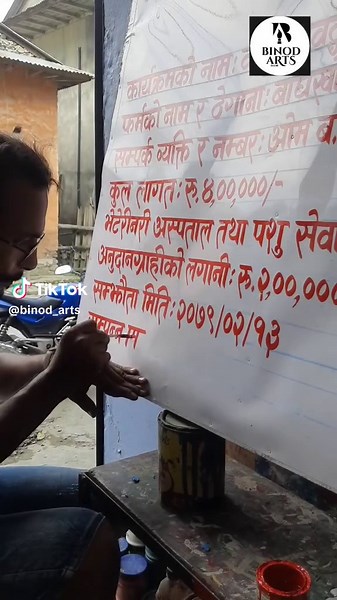 BINOD
ARTS
कार्यक्रमको नाम:
फर्मको नाम र ठेगाना:
सम्पर्क व्यक्ति र नम्बर: ओम ब.
कुल लागत: रु.४,००,०००/-
भेटेरीनरी अस्पताल तथा पशु सेवा
अनुदानग्राहीको लगानी: रु.२,००,०००
सम्झौता मिति: २०७९/०२/१३
TikTok
@binod_arts